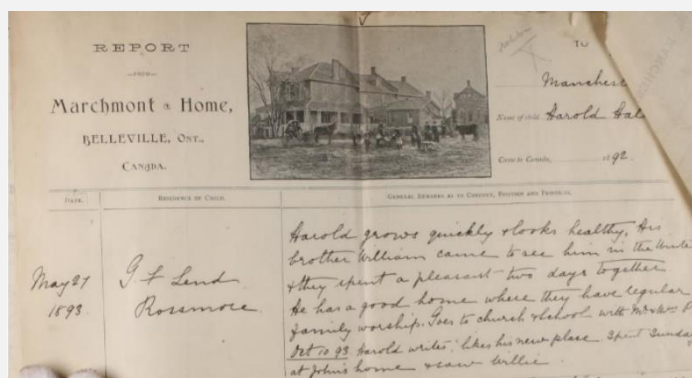 REPORT
FROM
Marchmont Home,
BELLEVILLE, ONT.,
CANADA.
TO
Manches
Name of child Harold Hal
Came to Canada, 1892
DATE.
RESIDENCE OF CHILD.
GENERAL REMARKS AS TO CONDUCT, POSITION AND PROGRESS.
May 27
1893
G F
Rossmore
Harold grows quickly & looks healthy. His
brother William came to see him in the Winte
& they spent a pleasant two days together
He has a good home where they have regular
family worship. Goes to church & school with Mr & Mrs
Oct 10 93 Harold writes, likes his new place. Spent Sunday
at John's home & saw Willie